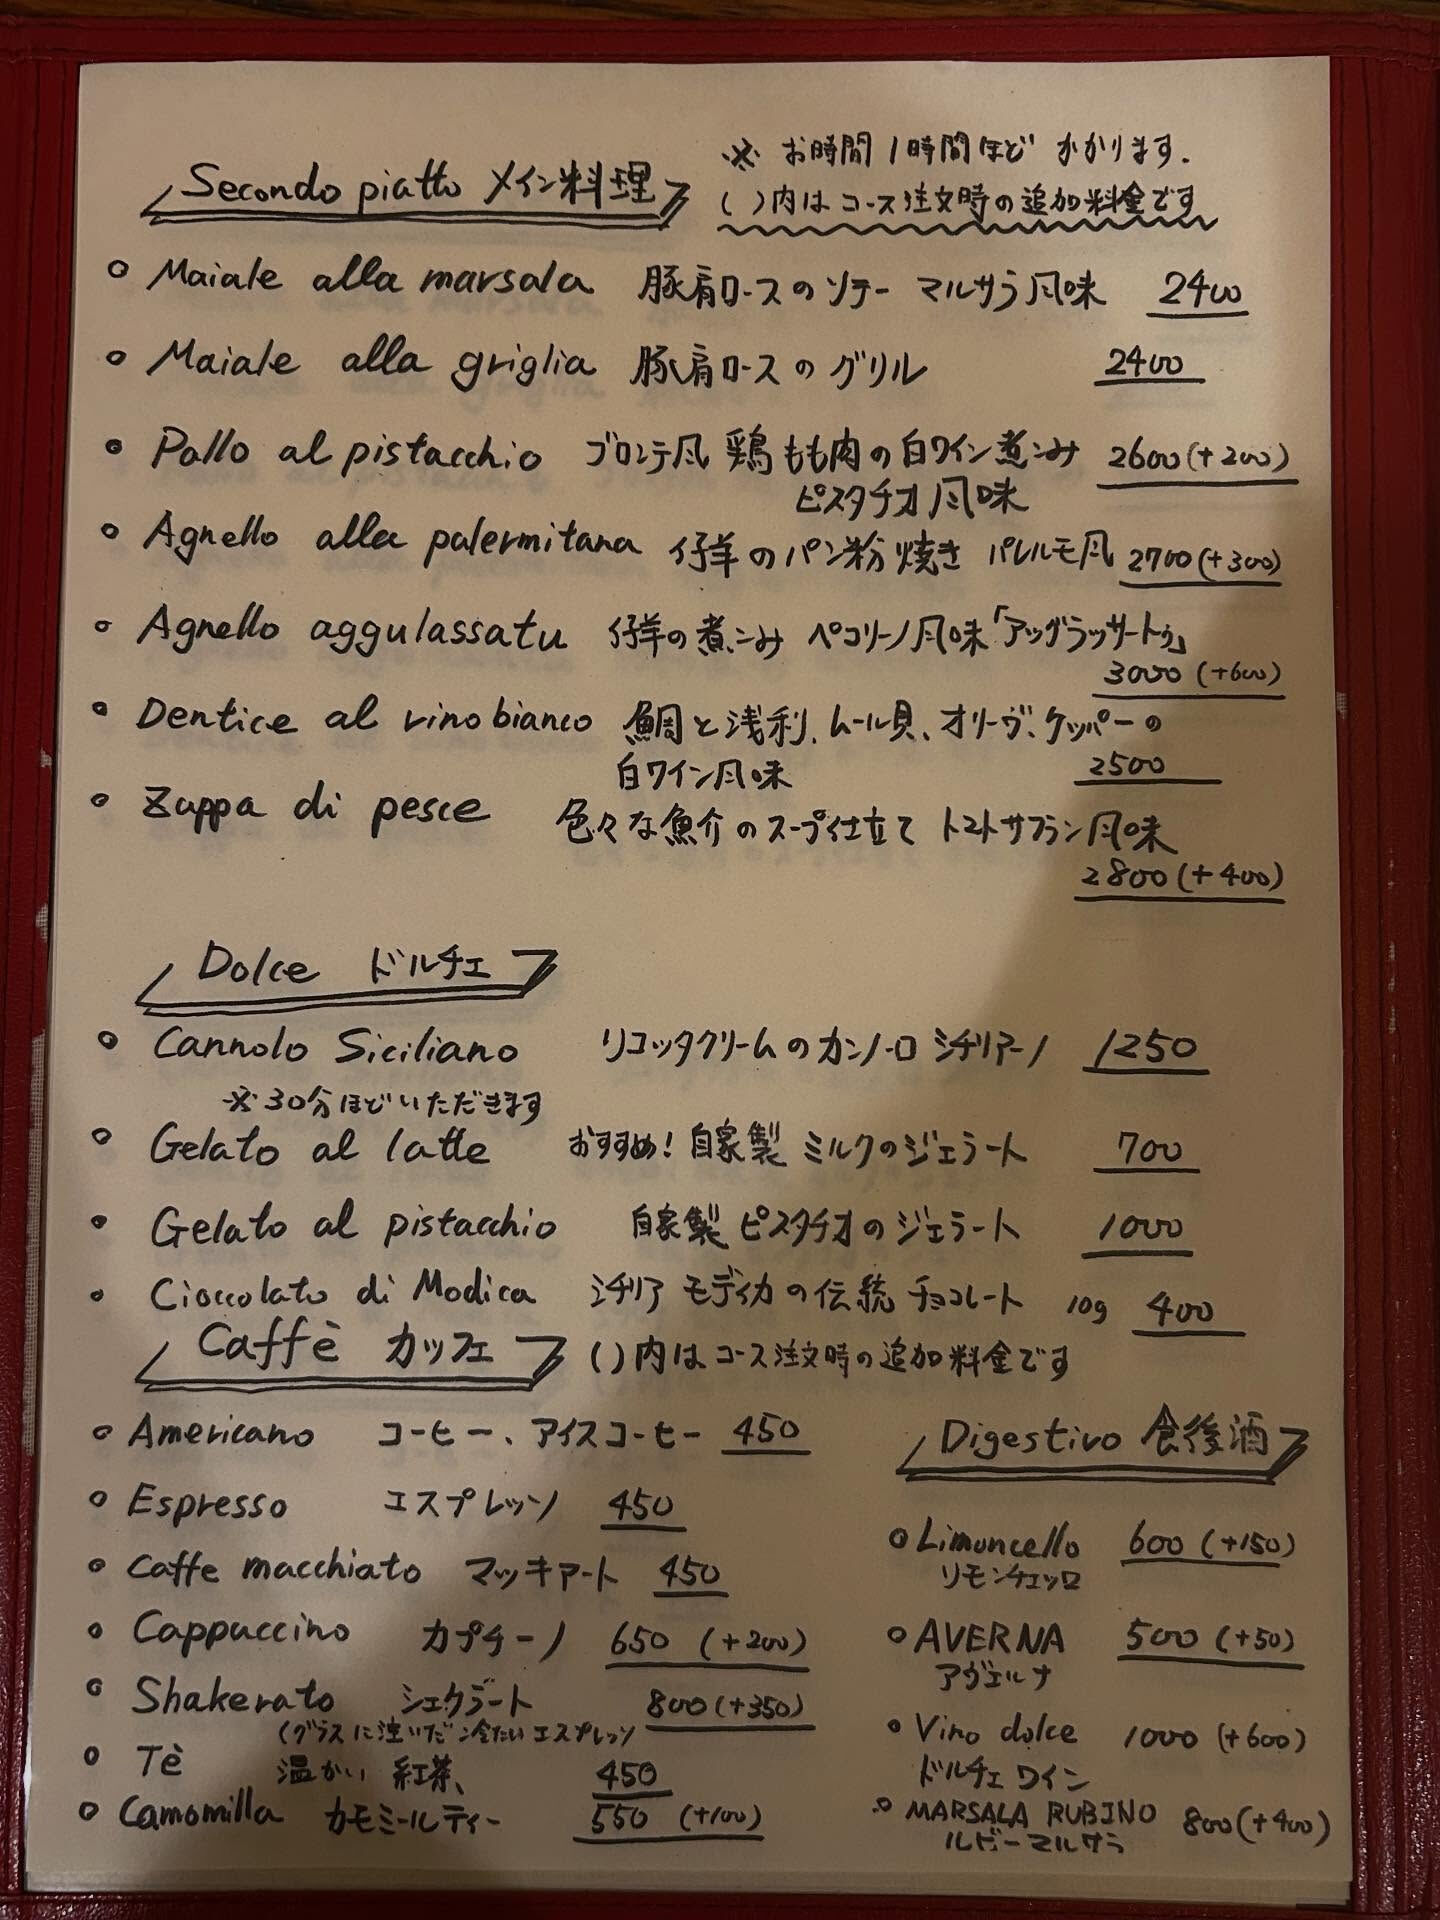 Secondo piatto メイン料理
※ お時間1時間ほど かかります.
( )内は コース注文時の追加料金です
○ Maiale alla marsala 豚肩ロースのソテー マルサラ風味 2400
○ Maiale alla griglia 豚肩ロースのグリル 2400
○ Pollo al pistacchio ブロンテ風 鶏もも肉の白ワイン煮こみ 2600(+200)
ピスタチオ風味
○ Agnello alla palermitana 仔羊のパン粉焼き パレルモ風 2700(+300)
○ Agnello aggulassatu 仔羊の煮こみ ペコリーノ風味「アッグラッサートゥ」
3000 (+600)
○ Dentice al vino bianco 鯛と浅利、ムール貝、オリーヴ、ケッパーの
白ワイン風味 2500
○ Zuppa di pesce 色々な魚介のスープ仕立て トマトサフラン風味
2800(+400)
Dolce ドルチェ
○ Cannolo Siciliano リコッタクリームのカンノーロ シチリアーノ 1250
※30分ほどいただきます
○ Gelato al latte おすすめ! 自家製 ミルクのジェラート 700
○ Gelato al pistacchio 自家製 ピスタチオのジェラート 1000
○ Cioccolato di Modica シチリア モディカの伝統 チョコレート 10g 400
Caffè カッフェ ( )内は コース注文時の追加料金です
○ Americano コーヒー、アイスコーヒー 450
○ Espresso エスプレッソ 450
○ Caffe macchiato マッキアート 450
○ Cappuccino カプチーノ 650 (+200)
○ Shakerato シェケラート 800(+350)
(グラスに注いだ冷たいエスプレッソ
○ Tè 温かい 紅茶、 450
○ Camomilla カモミールティー 550 (+100)
Digestivo 食後酒
○ Limoncello 600 (+150)
リモンチェッロ
○ AVERNA 500 (+50)
アヴェルナ
○ Vino dolce 1000 (+600)
ドルチェ ワイン
○ MARSALA RUBINO 800(+400)
ルビーマルサラ